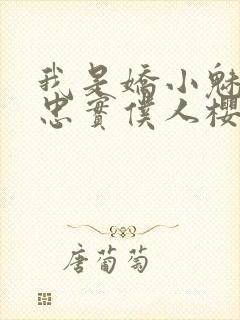 我是嬌小魅
忠實僕人櫻
唐葡萄